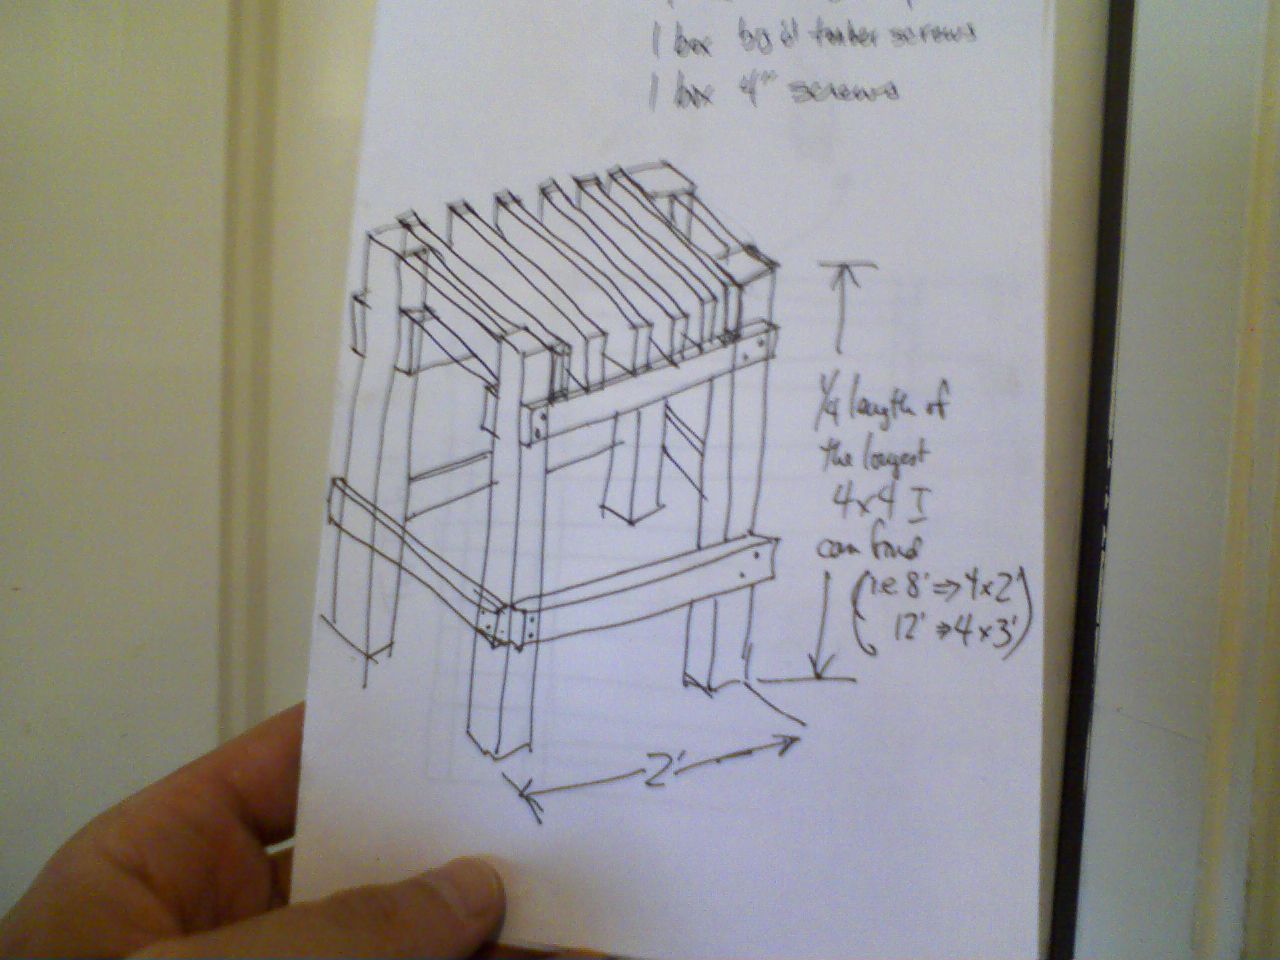 1 box big timber screws
1 box 4" screws
1/4 length of
the longest
4x4 I
can find
(i.e 8' => 4x2'
12' => 4x3')
2'